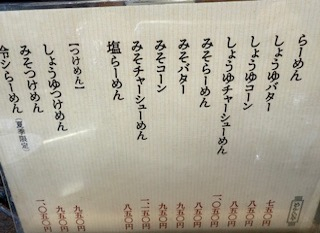 らーめん 七五〇円
しょうゆバター 八五〇円
しょうゆコーン 八五〇円
しょうゆチャーシューめん 一、〇五〇円
みそらーめん 八五〇円
みそバター 九五〇円
みそコーン 九五〇円
みそチャーシューめん 一、一五〇円
塩らーめん 八五〇円
【つけめん】
しょうゆつけめん 九五〇円
みそつけめん 九五〇円
冷シらーめん［夏季限定］ 一、〇五〇円